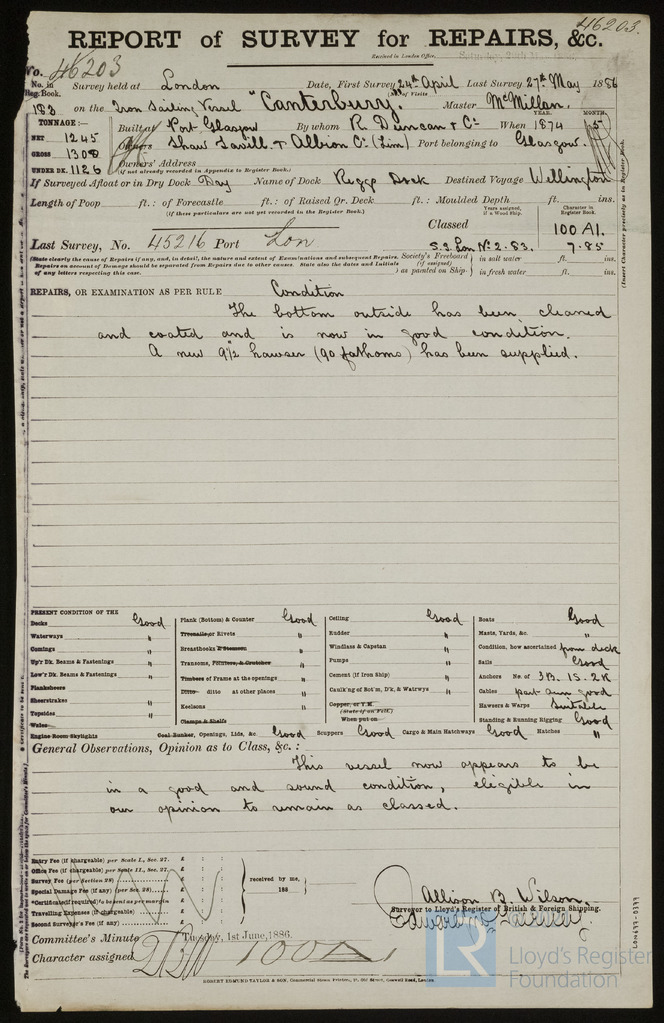 46203.
REPORT of SURVEY for REPAIRS, &c.
No. 46203
Received in London Office,
No. in Reg. Book. Survey held at London Date, First Survey 24th April Last Survey 27th May 1886
183 on the Iron Sailing Vessel "Canterbury." Master McMillan.
TONNAGE:—
NET 1245
GROSS 1308
UNDER DK. 1126
YEAR. MONTH.
Built at Port Glasgow By whom R. Duncan & Co When 1874 5
Owners Shaw Savill & Albion Co (Lim) Port belonging to Glasgow.
Owners' Address
(if not already recorded in Appendix to Register Book.)
If Surveyed Afloat or in Dry Dock Day Name of Dock Regps Dock Destined Voyage Wellington
Length of Poop ft.: of Forecastle ft.: of Raised Qr. Deck ft.: Moulded Depth ft. ins.
(If these particulars are not yet recorded in the Register Book.)
Years assigned, if a Wood Ship. Character in Register Book.
Classed 100 A1.
Last Survey, No. 45216 Port Lon S.S. Lon No. 2. 83. 7.85
(State clearly the cause of Repairs if any, and, in detail, the nature and extent of Examinations and subsequent Repairs.
Repairs on account of Damage should be separated from Repairs due to other causes. State also the dates and Initials
of any letters respecting this case.
Society's Freeboard (if assigned) as painted on Ship
in salt water ft. ins.
in fresh water ft. ins.
(Insert Character precisely as in Register Book.)
REPAIRS, OR EXAMINATION AS PER RULE Condition
The bottom outside has been cleaned
and coated and is now in good condition.
A new 9½ hawser (90 fathoms) has been supplied.
PRESENT CONDITION OF THE
Decks Good
Waterways "
Comings "
Up'r Dk. Beams & Fastenings "
Low'r Dk. Beams & Fastenings "
Planksheers
Sheerstrakes "
Topsides "
Wales
Engine Room Skylights
Plank (Bottom) & Counter Good
Treenails or Rivets "
Breasthooks & Stemson "
Transoms, Pointers, & Crutches "
Timbers of Frame at the openings "
Ditto ditto at other places "
Keelsons "
Clamps & Shelfs
Coal Bunker, Openings, Lids, &c. Good
Ceiling Good
Rudder "
Windlass & Capstan "
Pumps "
Cement (if Iron Ship) "
Caulk'ng of Bot'm, D'k, & Watrwys "
Copper, or Y.M.
(State if on Felt.)
When put on
Scuppers Good Cargo & Main Hatchways Good Hatches "
Boats Good
Masts, Yards, &c. "
Condition, how ascertained from deck
Sails Good
Anchors No. of 3B. 1S. 2K
Cables part seen good
Hawsers & Warps Suitable
Standing & Running Rigging Good
General Observations, Opinion as to Class, &c.:
This vessel now appears to be
in a good and sound condition, eligible in
our opinion to remain as classed.
Entry Fee (if chargeable) per Scale I., Sec. 27. £ : :
Office Fee (if chargeable) per Scale II., Sec. 27. £ : :
Survey Fee (per Section 28) £ : :
Special Damage Fee (if any) (per Sec. 28) £ : :
*Certificate (if required) to be sent as per margin £ : :
Travelling Expenses (if chargeable) £ : :
Second Surveyor's Fee (if any) £ : :
received by me,
188
Allison B. Wilson.
Surveyor to Lloyd's Register of British & Foreign Shipping.
Committee's Minute Tuesday, 1st June, 1886.
Character assigned 100A1
LR Lloyd's Register
Foundation
LON699-0399